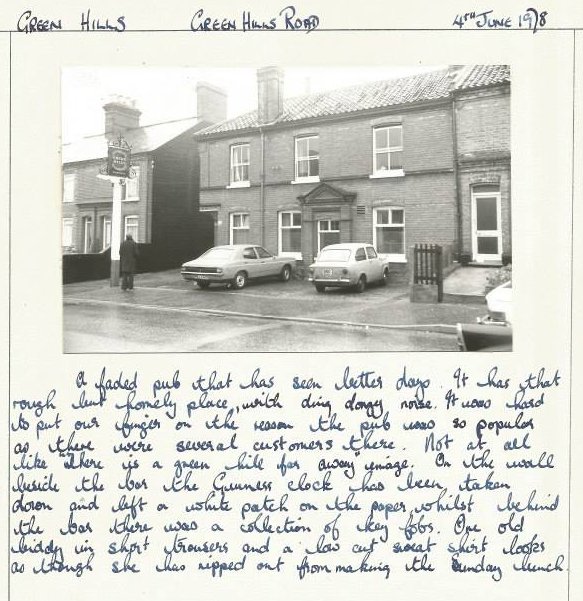 GREEN HILLS GREEN HILLS ROAD 4TH JUNE 1978
A faded pub that has seen better days. It has that
rough but homely place, with ding dongy noise. It was hard
to put our finger on the reason the pub was so popular
as there were several customers there. Not at all
like "there is a green hill far away" image. On the wall
beside the bar the Guinness clock has been taken
down and left a white patch on the paper, whilst behind
the bar there was a collection of key fobs. One old
biddy in short trousers and a low cut sweat shirt looks
as though she has nipped out from making the Sunday lunch.